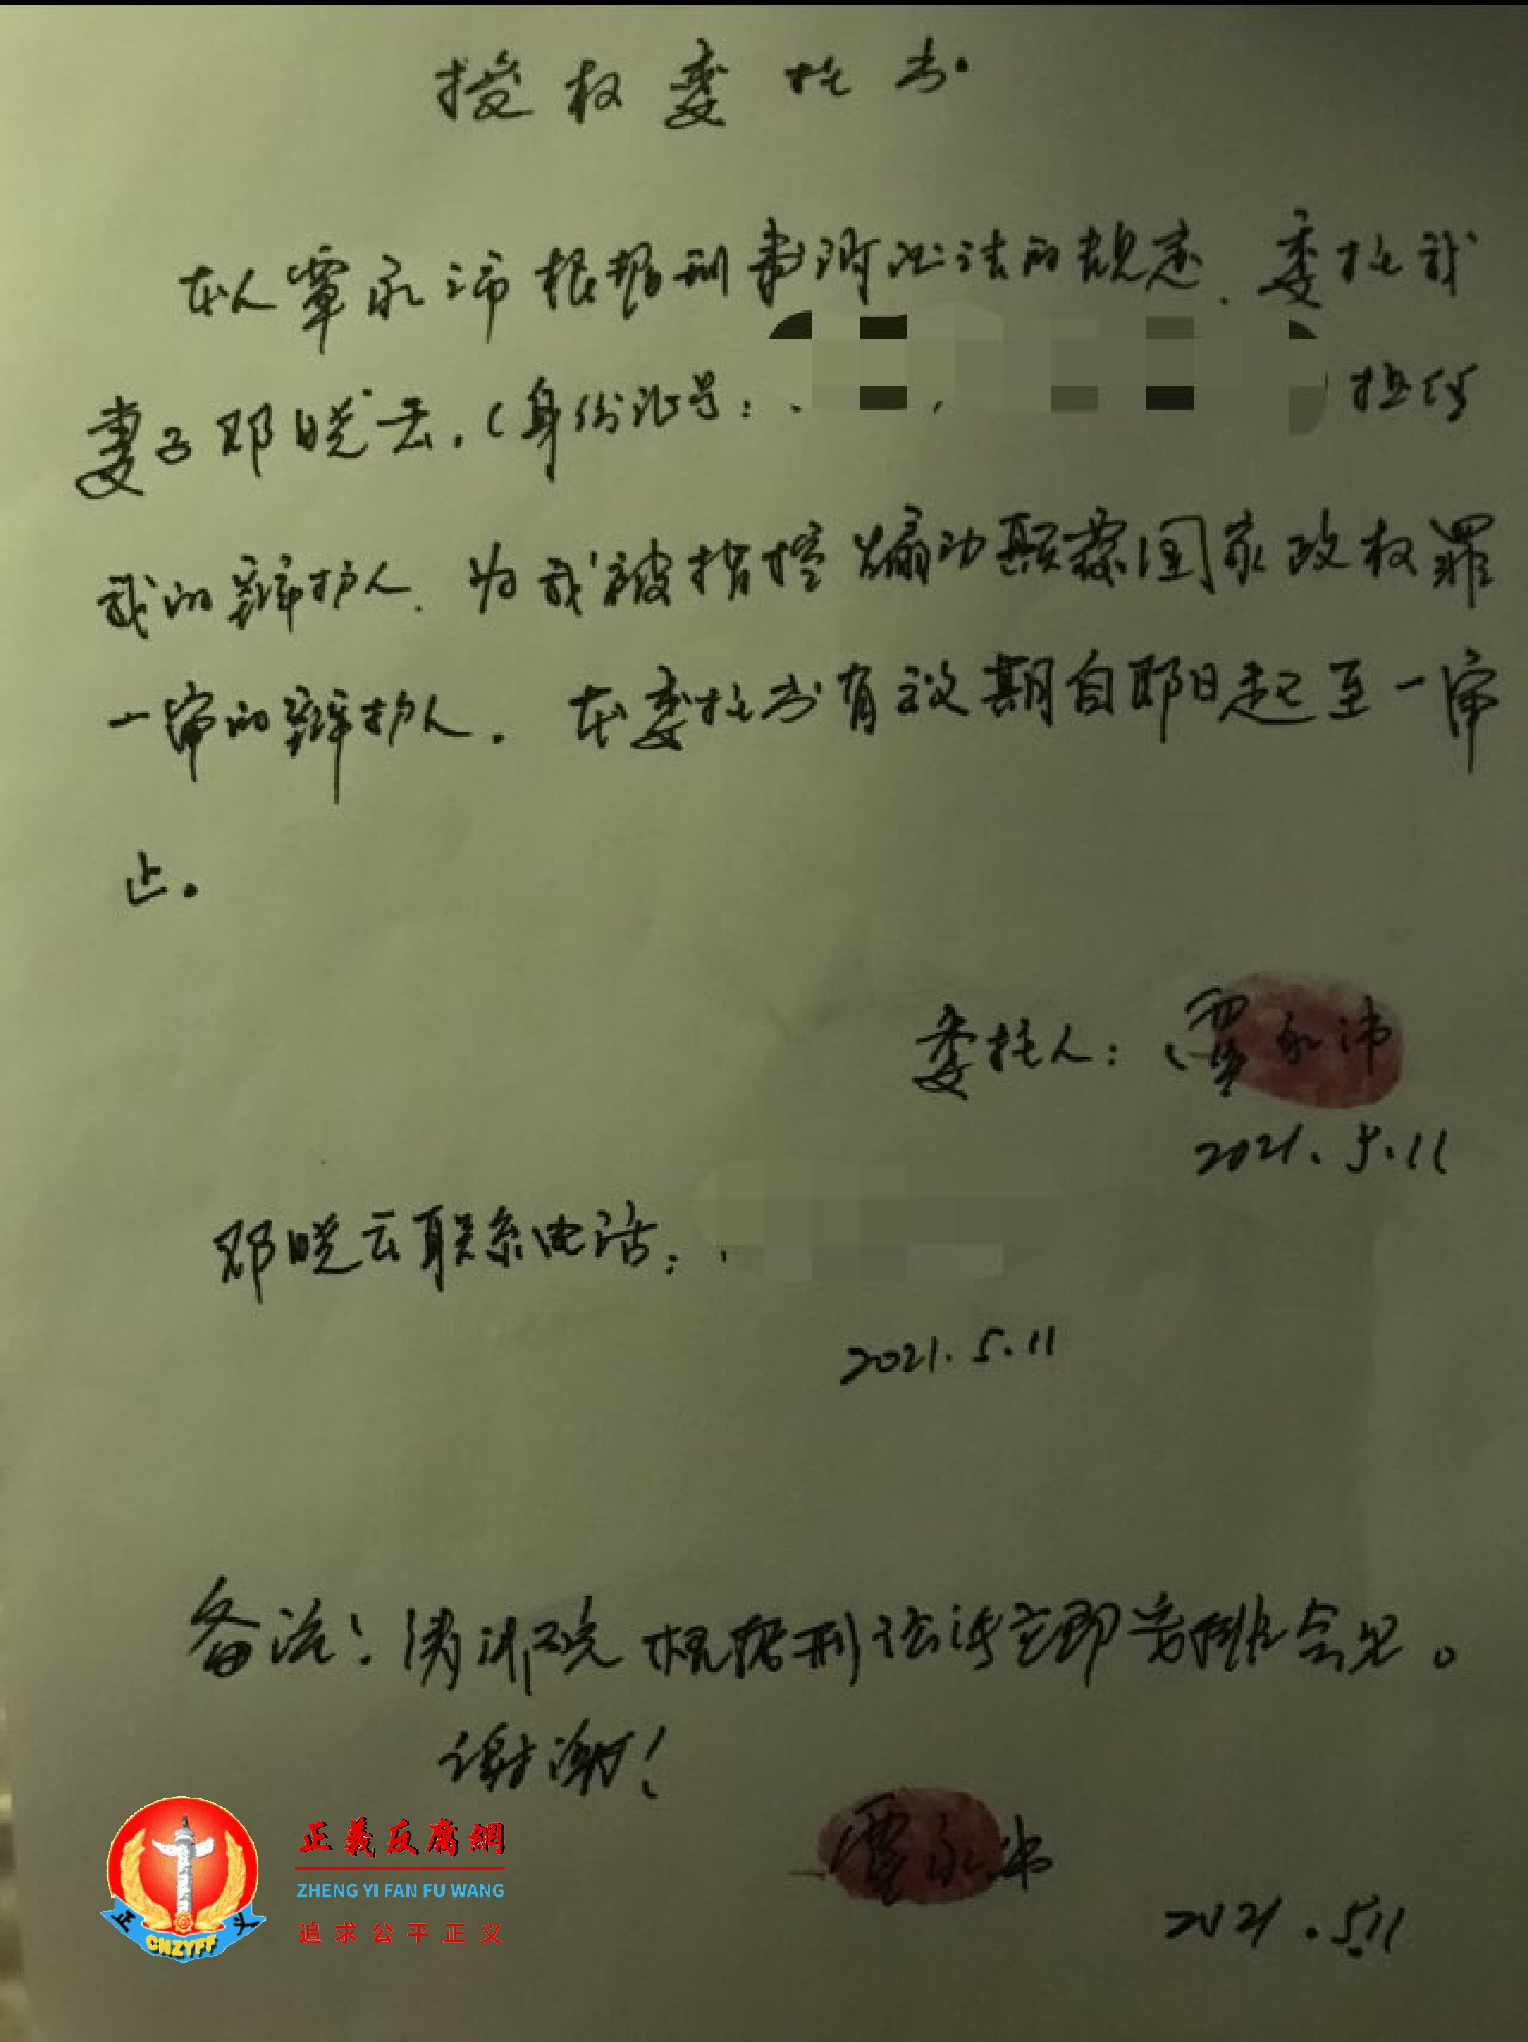 授权委托书.
本人覃永沛根据刑事诉讼法的规定,委托我
妻子邓晓云,(身份证号:
担任
我的辩护人,为我被指控煽动颠覆国家政权罪
一审的辩护人.本委托书有效期自即日起至一审
止.
委托人:覃永沛
2021.5.11
邓晓云联系电话:
2021.5.11
备注:请法院根据刑诉法立即安排会见。
谢谢!
覃永沛
2021.5.11
正義反腐網
ZHENG YI FAN FU WANG
追求公平正义
正 义
CNZYFF